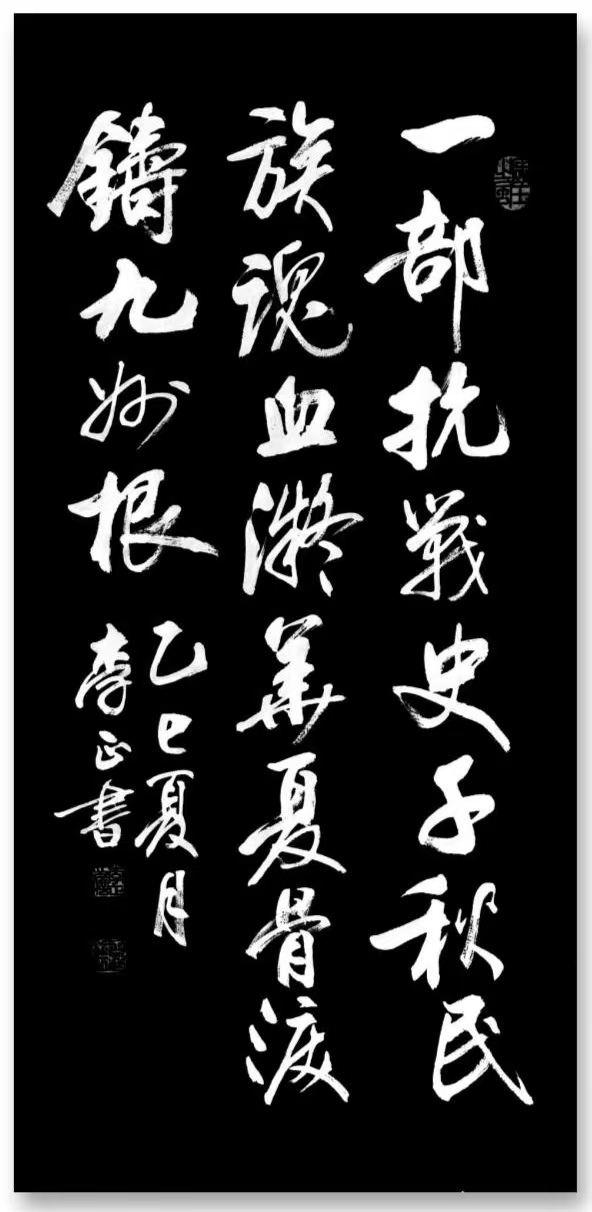 一部抗戰史千秋民
族魂血凝華夏骨淚
鑄九州根
乙巳夏月
李正書